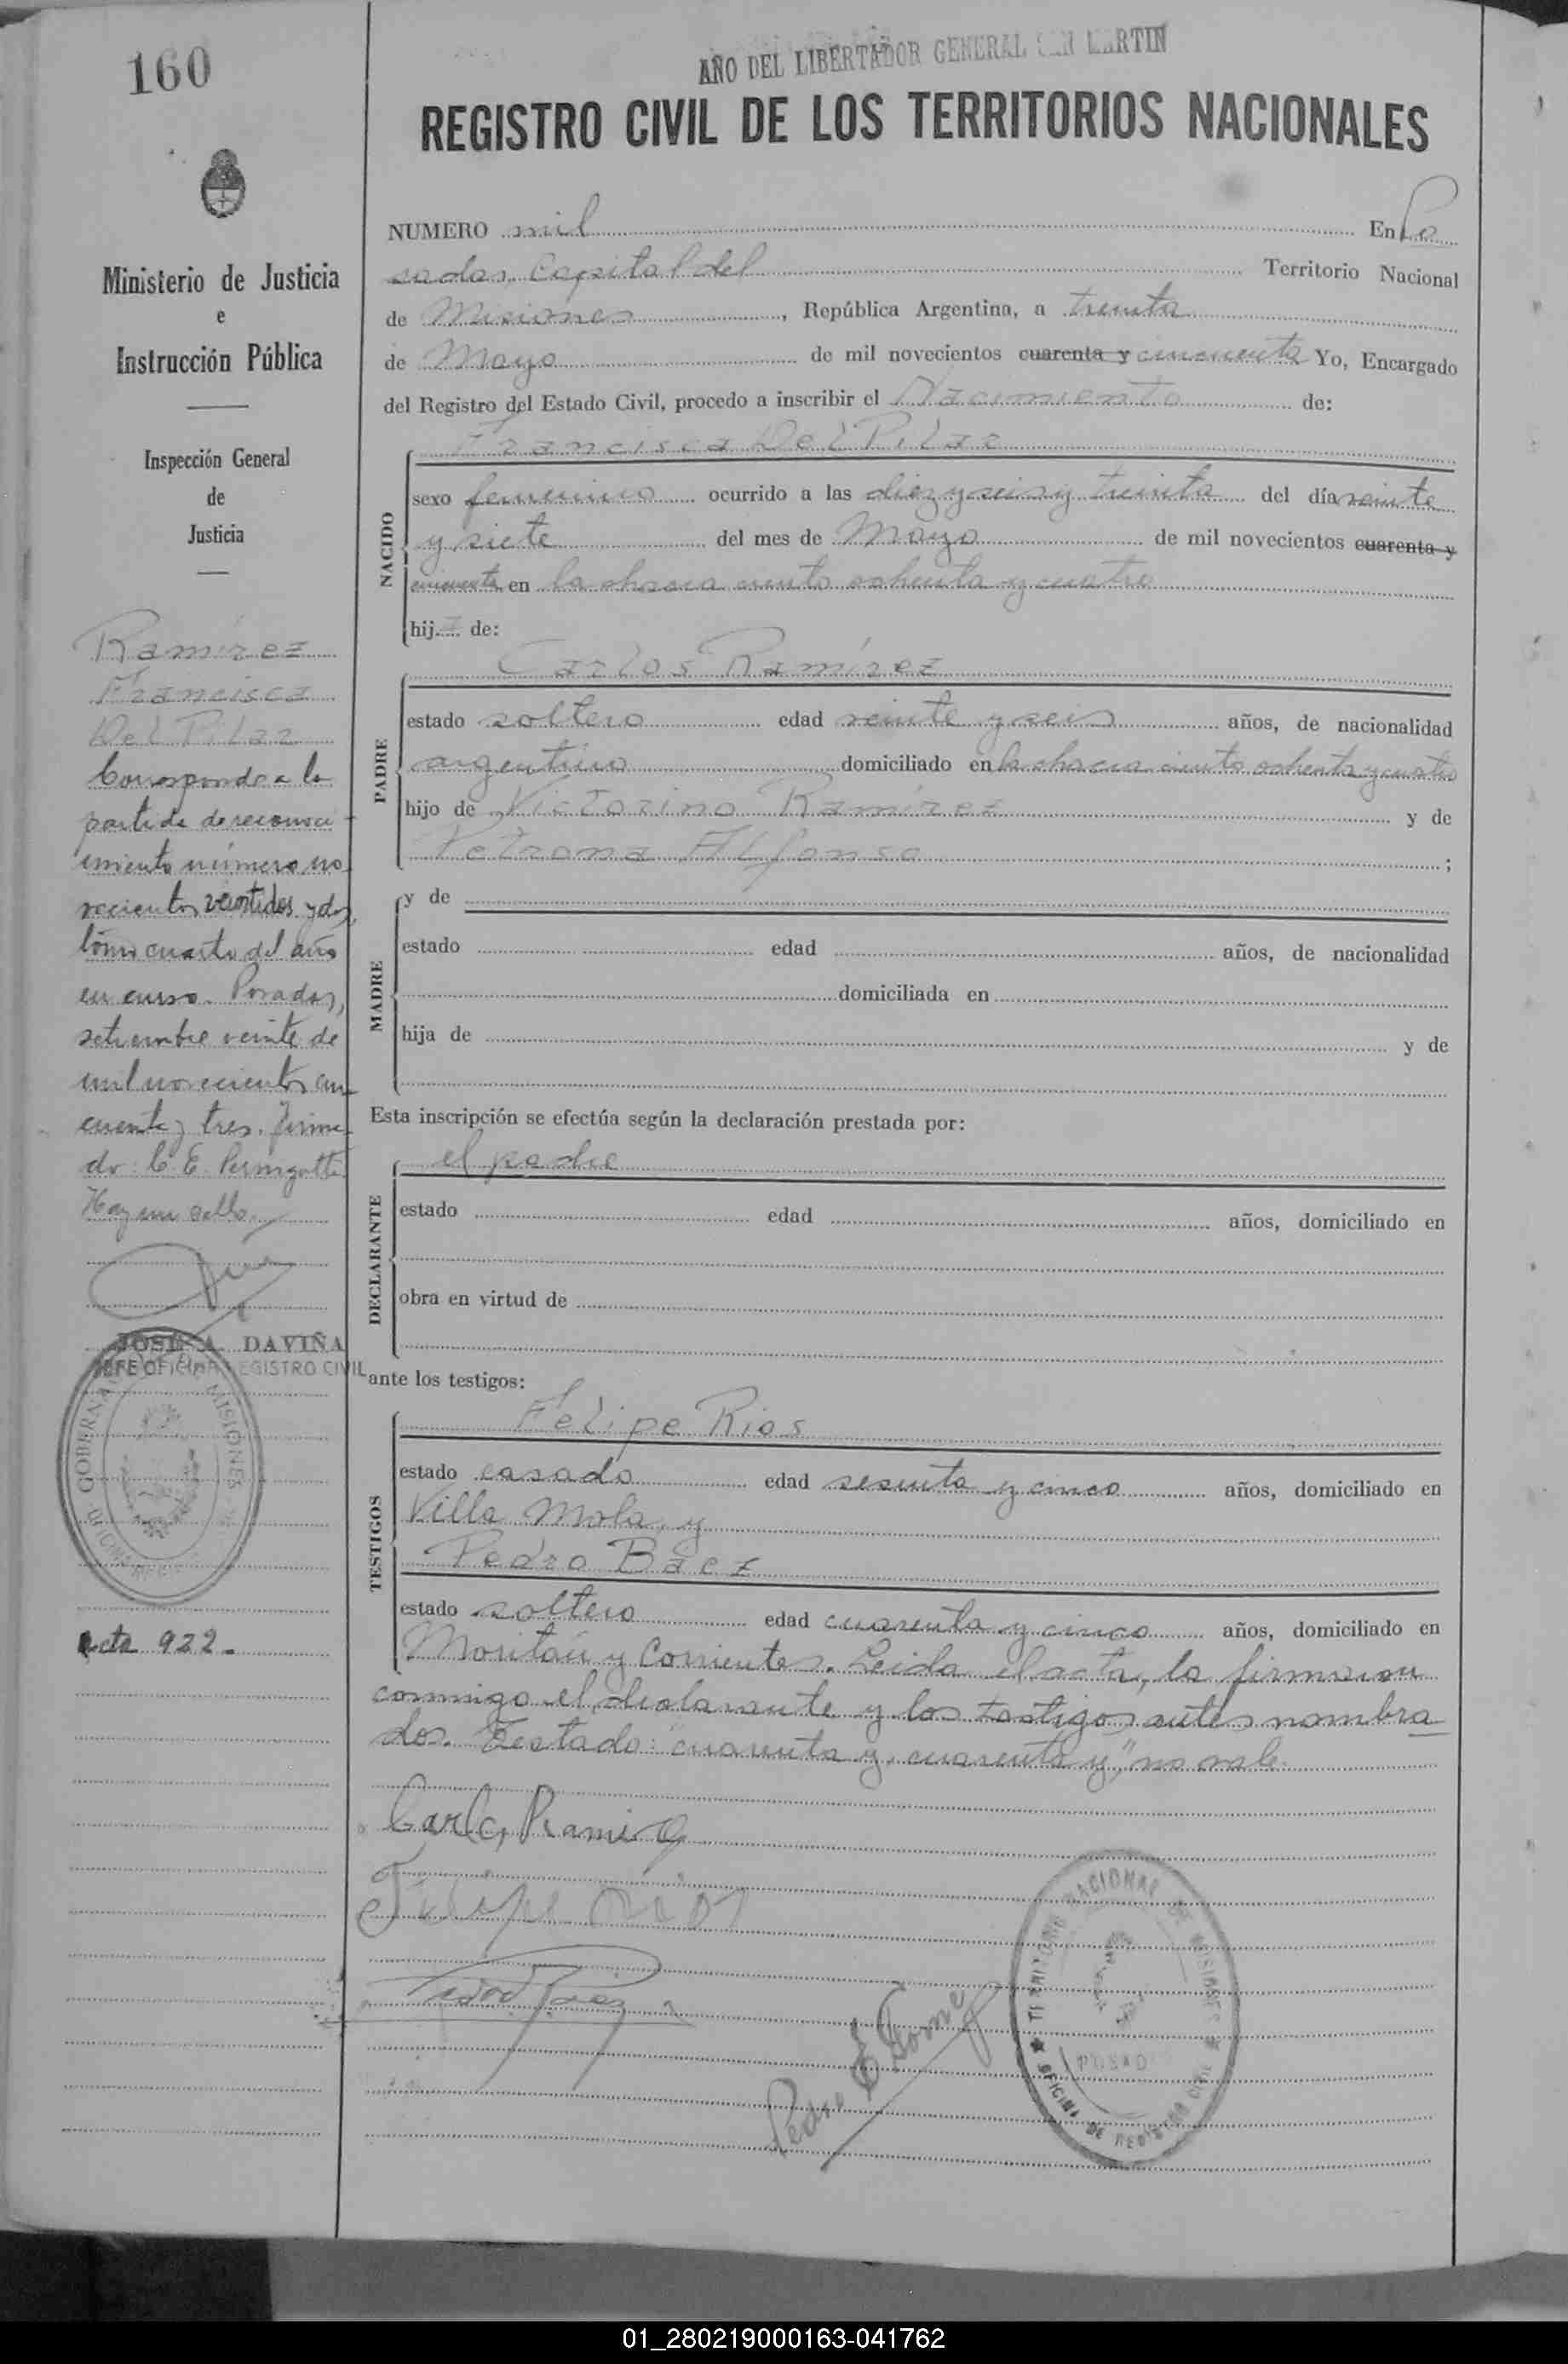 160
AÑO DEL LIBERTADOR GENERAL SAN MARTIN
REGISTRO CIVIL DE LOS TERRITORIOS NACIONALES
Ministerio de Justicia
e
Instrucción Pública
Inspección General
de
Justicia
Ramírez
Francisca
Del Pilar
Corresponde a la
partida de reconoci
miento número no
vecientos veintidos y dos,
tomo cuarto del año
en curso. Posadas,
setiembre veinte de
mil novecientos cin
cuenta y tres. Firma
do C. E. Pernigotti
Hay un sello.
JOSE A. DAVIÑA
JEFE OFICINA REGISTRO CIVIL
GOBERNA MISIONES
Acta 922.
NUMERO mil En Po
sadas, Capital del Territorio Nacional
de Misiones, República Argentina, a treinta
de Mayo de mil novecientos cuarenta y cincuenta Yo, Encargado
del Registro del Estado Civil, procedo a inscribir el Nacimiento de:
NACIDO
Francisca Del Pilar
sexo femenino ocurrido a las diez y seis y treinta del día veinte
y siete del mes de Mayo de mil novecientos cuarenta y
cincuenta en la chacra ciento ochenta y cuatro
hij.a de:
PADRE
Carlos Ramírez
estado soltero edad veinte y seis años, de nacionalidad
argentino domiciliado en la chacra ciento ochenta y cuatro
hijo de Victorino Ramírez y de
Petrona Alfonso ;
MADRE
y de
estado edad años, de nacionalidad
domiciliada en
hija de y de
Esta inscripción se efectúa según la declaración prestada por:
DECLARANTE
el padre
estado edad años, domiciliado en
obra en virtud de
ante los testigos:
TESTIGOS
Felipe Rios
estado casado edad sesenta y cinco años, domiciliado en
Villa Mola, y
Pedro Báez
estado soltero edad cuarenta y cinco años, domiciliado en
Moritán y Corrientes. Leida el acta, la firmaron
conmigo el declarante y los testigos antes nombra
dos. Testado: "cuarenta y, cuarenta y", no vale.
Carlos Ramirez
Felipe Rios
Pedro Báez
Pedro E Gome
TERRITORIO NACIONAL DE MISIONES
POSADAS
OFICINA DE REGISTRO CIVIL
01_280219000163-041762